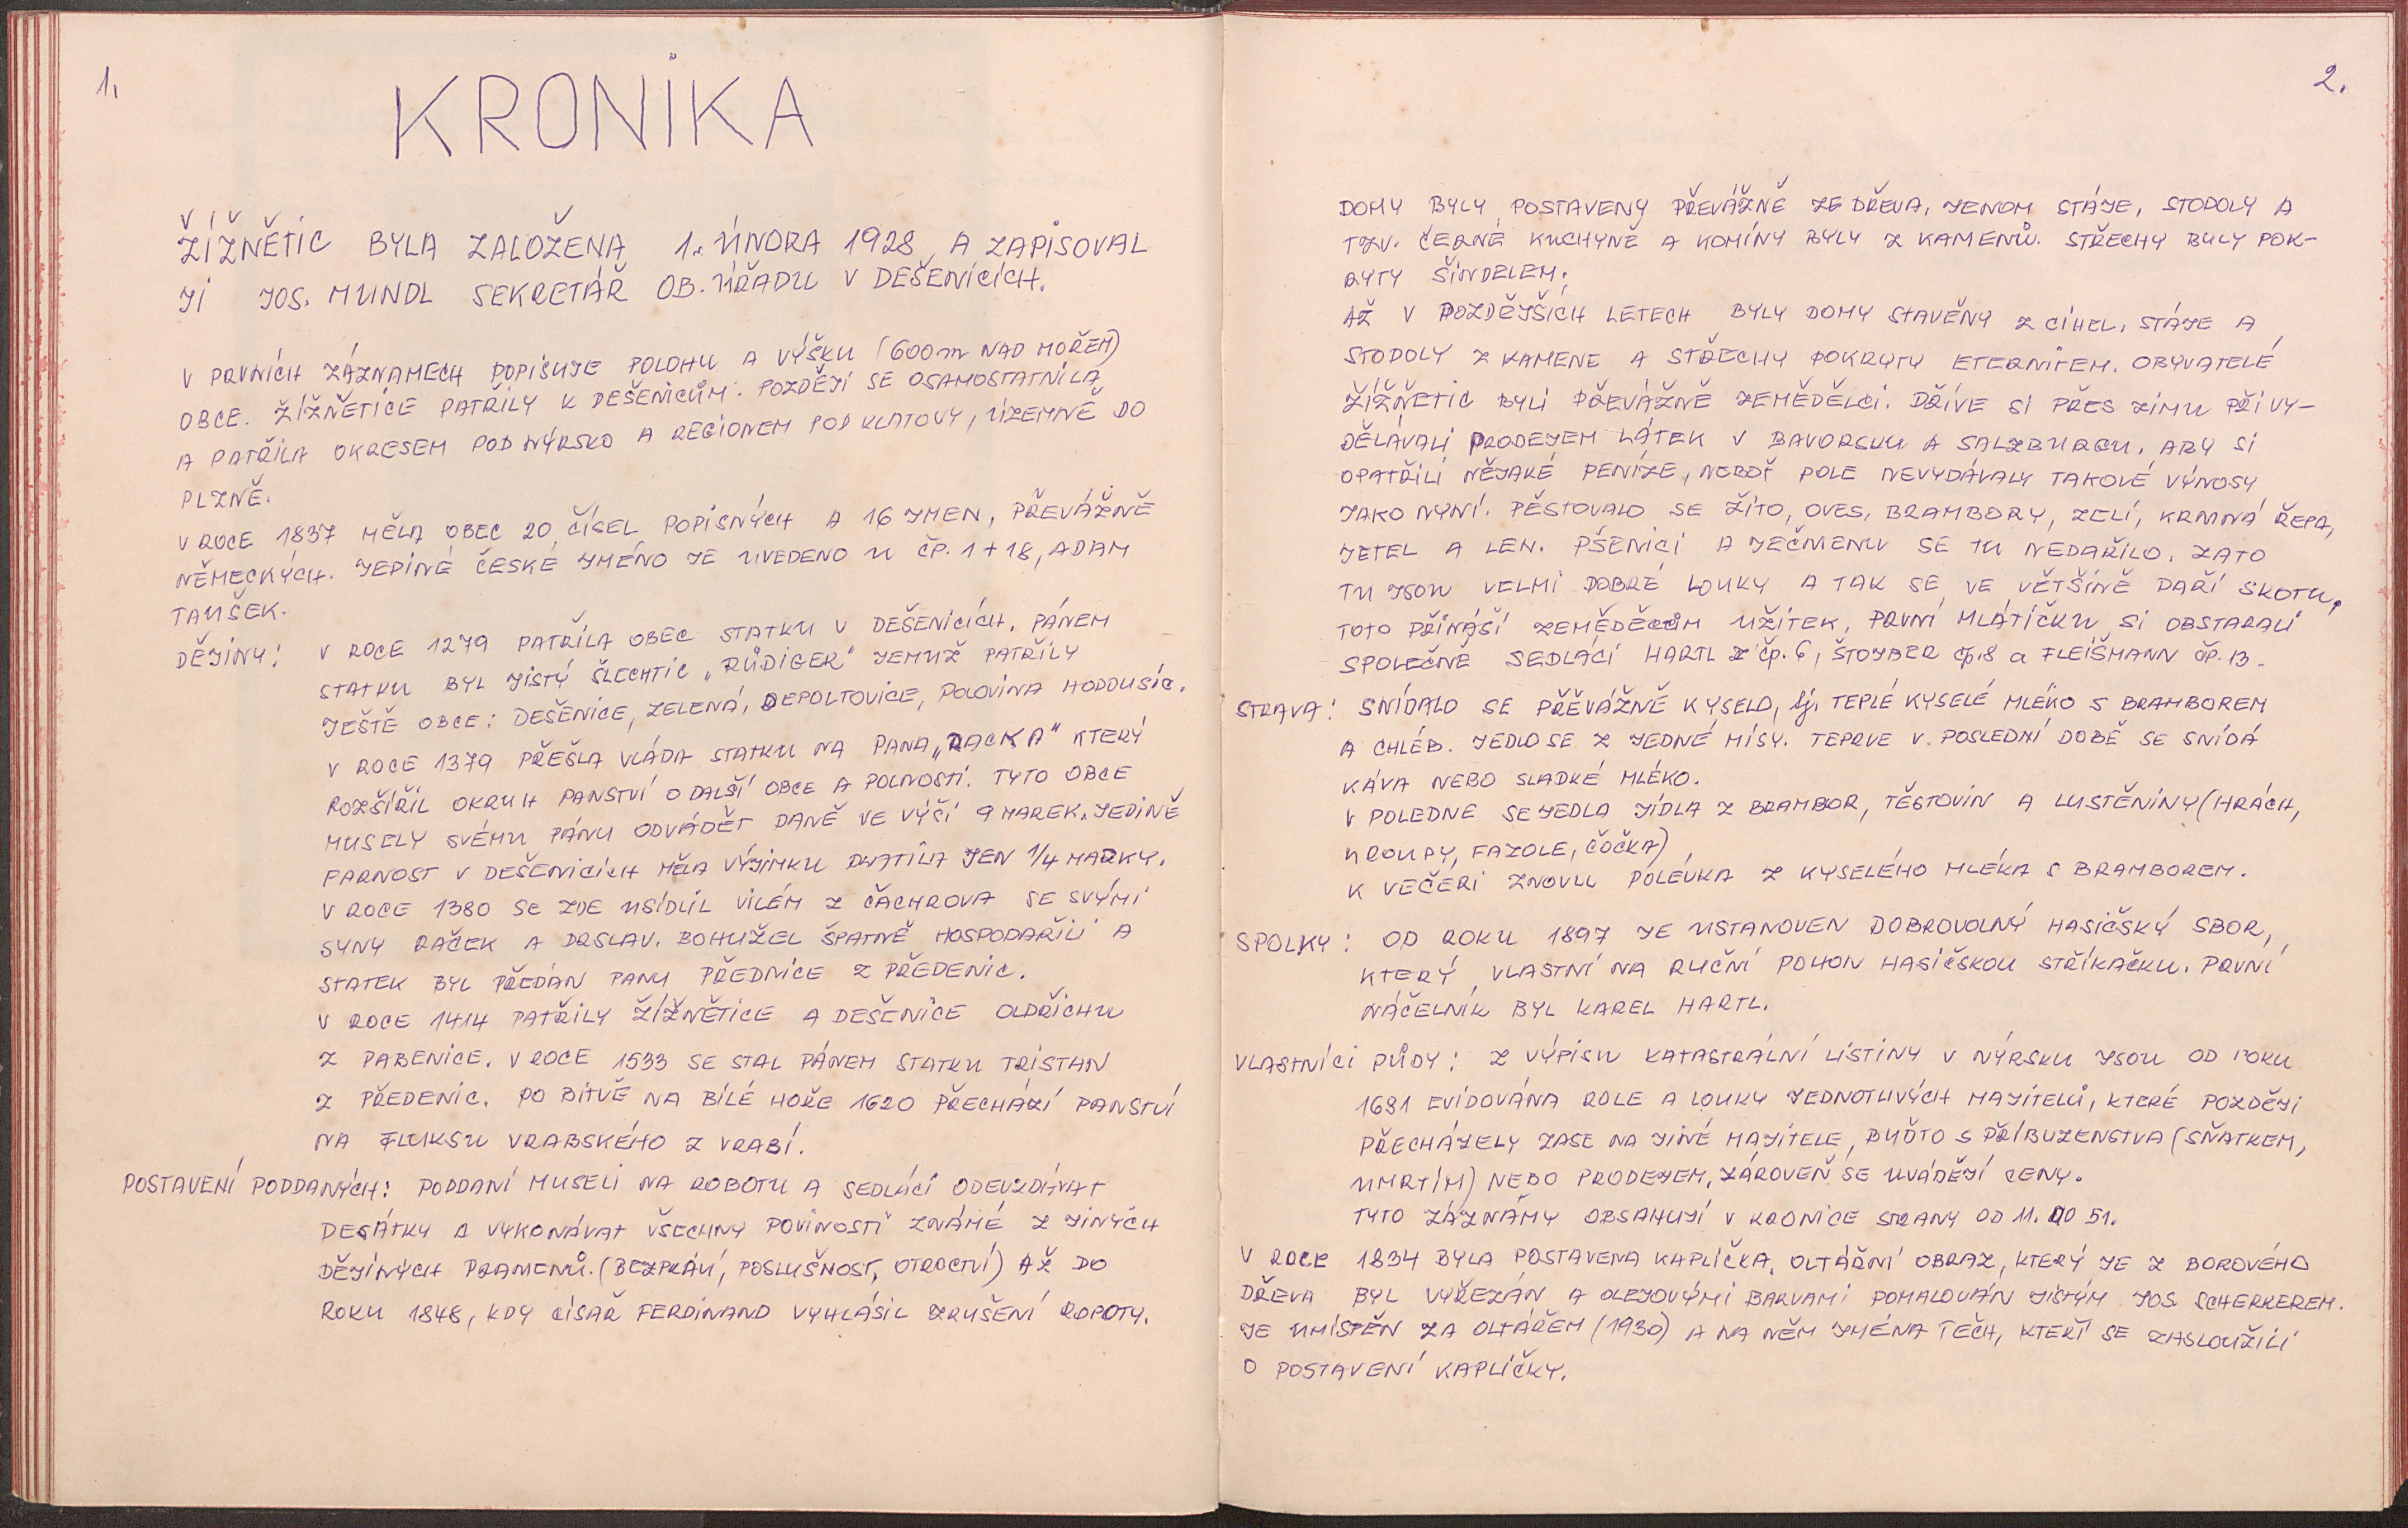 1.
KRONIKA
ŽÍŽNĚTIC BYLA ZALOŽENA 1. ÚNORA 1928 A ZAPISOVAL
JI JOS. MUNDL SEKRETÁŘ OB. ÚŘADU V DEŠENICÍCH.
V PRVNÍCH ZÁZNAMECH POPISUJE POLOHU A VÝŠKU (600m NAD MOŘEM)
OBCE. ŽÍŽNĚTICE PATŘILY K DEŠENICŮM. POZDĚJI SE OSAMOSTATNILA
A PATŘILA OKRESEM POD NÝRSKO A REGIONEM POD KLATOVY, ÚZEMNĚ DO
PLZNĚ.
V ROCE 1837 MĚLA OBEC 20 ČÍSEL POPISNÝCH A 16 JMEN, PŘEVÁŽNĚ
NĚMECKÝCH. JEDINÉ ČESKÉ JMÉNO JE UVEDENO U ČP. 1 + 18, ADAM
TAUŠEK.
DĚJINY: V ROCE 1279 PATŘILA OBEC STATKU V DEŠENICÍCH. PÁNEM
STATKU BYL JISTÝ ŠLECHTIC „RŮDIGER" JEMUŽ PATŘILY
JEŠTĚ OBCE: DEŠENICE, ZELENÁ, DEPOLTOVICE, POLOVINA HODOUSIC.
V ROCE 1379 PŘEŠLA VLÁDA STATKU NA PANA „RACKA" KTERÝ
ROZŠÍŘIL OKRUH PANSTVÍ O DALŠÍ OBCE A POLNOSTI. TYTO OBCE
MUSELY SVÉMU PÁNU ODVÁDĚT DANĚ VE VÝŠI 9 MAREK. JEDINĚ
FARNOST V DEŠENICÍCH MĚLA VÝJIMKU PLATILA JEN 1/4 MARKY.
V ROCE 1380 SE ZDE USÍDLIL VILÉM Z ČACHROVA SE SVÝMI
SYNY RAČEK A DRSLAV. BOHUŽEL ŠPATNĚ HOSPODAŘILI A
STATEK BYL PŘEDÁN PANU PŘEDNICE Z PŘEDENIC.
V ROCE 1414 PATŘILY ŽÍŽNĚTICE A DEŠENICE OLDŘICHU
Z PABENICE. V ROCE 1533 SE STAL PÁNEM STATKU TRISTAN
Z PŘEDENIC. PO BITVĚ NA BÍLÉ HOŘE 1620 PŘECHÁZÍ PANSTVÍ
NA FLUKSU VRABSKÉHO Z VRABÍ.
POSTAVENÍ PODDANÝCH: PODDANÍ MUSELI NA ROBOTU A SEDLÁCI ODEVZDÁVAT
DESÁTKY A VYKONÁVAT VŠECHNY POVINOSTI ZNÁMÉ Z JINÝCH
DĚJINÝCH PRAMENŮ. (BEZPRÁVÍ, POSLUŠNOST, OTROCTVÍ) AŽ DO
ROKU 1848, KDY CÍSAŘ FERDINAND VYHLÁSIL ZRUŠENÍ ROBOTY.
2.
DOMY BYLY POSTAVENY PŘEVÁŽNĚ ZE DŘEVA, JENOM STÁJE, STODOLY A
TZV. ČERNÉ KUCHYNĚ A KOMÍNY BYLY Z KAMENŮ. STŘECHY BYLY POK-
RYTY ŠINDELEM.
AŽ V POZDĚJŠÍCH LETECH BYLY DOMY STAVĚNY Z CIHEL. STÁJE A
STODOLY Z KAMENE A STŘECHY POKRYTY ETERNITEM. OBYVATELÉ
ŽÍŽNĚTIC BYLI PŘEVÁŽNĚ ZEMĚDĚLCI. DŘÍVE SI PŘES ZIMU PŘIVY-
DĚLÁVALI PRODEJEM LÁTEK V BAVORSKU A SALZBURGU, ABY SI
OPATŘILI NĚJAKÉ PENÍZE, NEBOŤ POLE NEVYDÁVALY TAKOVÉ VÝNOSY
JAKO NYNÍ. PĚSTOVALO SE ŽITO, OVES, BRAMBORY, ZELÍ, KRMNÁ ŘEPA,
JETEL A LEN. PŠENICI A JEČMENU SE TU NEDAŘILO. ZATO
TU JSOU VELMI DOBRÉ LOUKY A TAK SE VE VĚTŠINĚ DAŘÍ SKOTU.
TOTO PŘINÁŠÍ ZEMĚDĚLCŮM UŽITEK. PRVNÍ MLÁTIČKU SI OBSTARALI
SPOLEČNĚ SEDLÁCI HARTL Z ČP. 6, ŠTOJBER čp. 8 a FLEIŠMANN ČP. 13.
STRAVA: SNÍDALO SE PŘEVÁŽNĚ KYSELO, tj. TEPLÉ KYSELÉ MLÉKO S BRAMBOREM
A CHLÉB. JEDLO SE Z JEDNÉ MÍSY. TEPRVE V POSLEDNÍ DOBĚ SE SNÍDÁ
KÁVA NEBO SLADKÉ MLÉKO.
V POLEDNE SE JEDLA JÍDLA Z BRAMBOR, TĚSTOVIN A LUSTĚNINY (HRÁCH,
KROUPY, FAZOLE, ČOČKA)
K VEČEŘI ZNOVU POLÉVKA Z KYSELÉHO MLÉKA S BRAMBOREM.
SPOLKY: OD ROKU 1897 JE USTANOVEN DOBROVOLNÝ HASIČSKÝ SBOR,
KTERÝ VLASTNÍ NA RUČNÍ POHON HASIČSKOU STŘÍKAČKU. PRVNÍ
NÁČELNÍK BYL KAREL HARTL.
VLASTNÍCI PŮDY: Z VÝPISU KATASTRÁLNÍ LISTINY V NÝRSKU JSOU OD ROKU
1681 EVIDOVÁNA ROLE A LOUKY JEDNOTLIVÝCH MAJITELŮ, KTERÉ POZDĚJI
PŘECHÁZELY ZASE NA JINÉ MAJITELE, BUĎTO S PŘÍBUZENSTVA (SŇATKEM,
UMRTÍM) NEBO PRODEJEM, ZÁROVEŇ SE UVÁDĚJÍ CENY.
TYTO ZÁZNAMY OBSAHUJÍ V KRONICE STRANY OD 11. DO 51.
V ROCE 1834 BYLA POSTAVENA KAPLIČKA. OLTÁŘNÍ OBRAZ, KTERÝ JE Z BOROVÉHO
DŘEVA BYL VYŘEZÁN A OLEJOVÝMI BARVAMI POMALOVÁN JISTÝM JOS. SCHERREREM.
JE UMÍSTĚN ZA OLTÁŘEM (1930) A NA NĚM JMÉNA TĚCH, KTEŘÍ SE ZASLOUŽILI
O POSTAVENÍ KAPLIČKY.